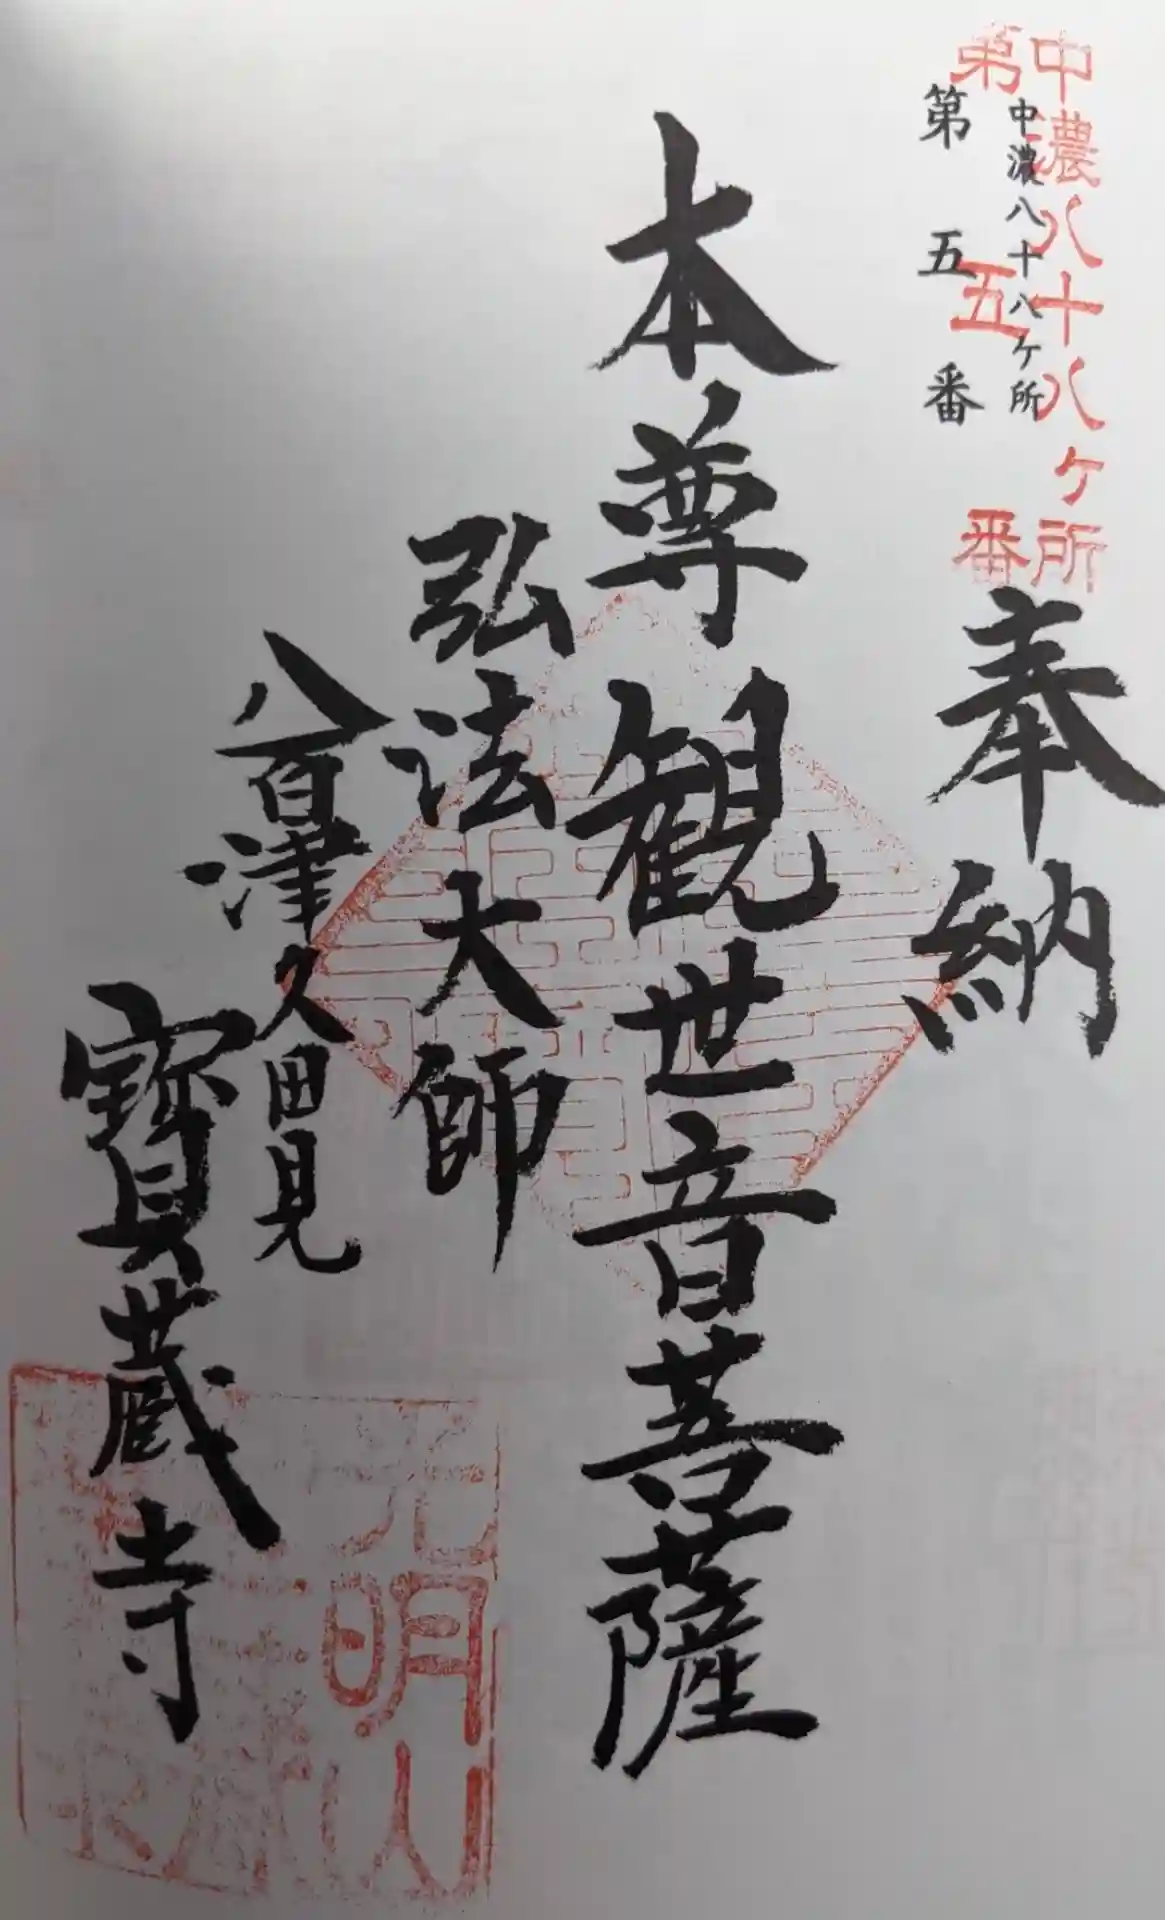 中濃八十八ヶ所
第五番
中濃八十八ケ所
第五番
奉納
本尊観世音菩薩
弘法大師
八百津久田見
寶蔵寺
光明山